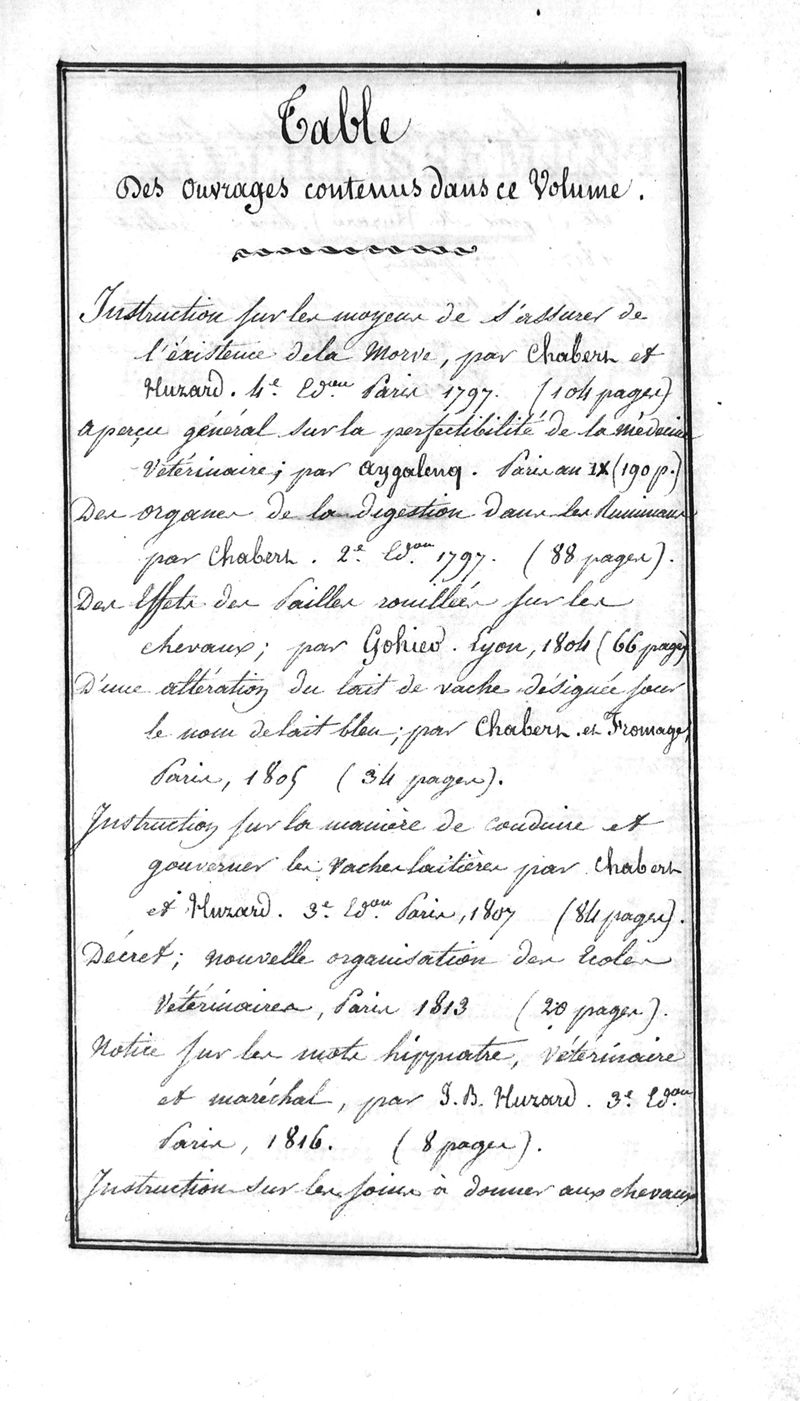 Table
Des ouvrages contenus dans ce Volume.
Instruction sur les moyens de s'assurer de
l'éxistence de la Morve, par Chabert et
Huzard. 4e. Edon. Paris 1797. (104 pages)
Aperçu général sur la perfectibilité de la médecine
vétérinaire; par Aygalenq. Paris an IX (190 p.)
Des organes de la digestion dans les Ruminans
par Chabert. 2e. Edon. 1797. (88 pages).
Des Effets des Pailles rouillées sur les
chevaux; par Gohier. Lyon, 1804 (66 pages)
D'une altération du lait de vache désignée sous
le nom de lait bleu; par Chabert et Fromage,
Paris, 1805 (34 pages).
Instruction sur la manière de conduire et
gouverner les vaches laitières par Chabert
et Huzard. 3e. Edon. Paris, 1807 (84 pages).
Décret; nouvelle organisation des Ecoles
Vétérinaires, Paris 1813 (20 pages).
Notice sur les mots hippiatre, vétérinaire
et maréchal, par J. B. Huzard. 3e. Edon.
Paris, 1816. (8 pages).
Instruction sur les soins à donner aux chevaux